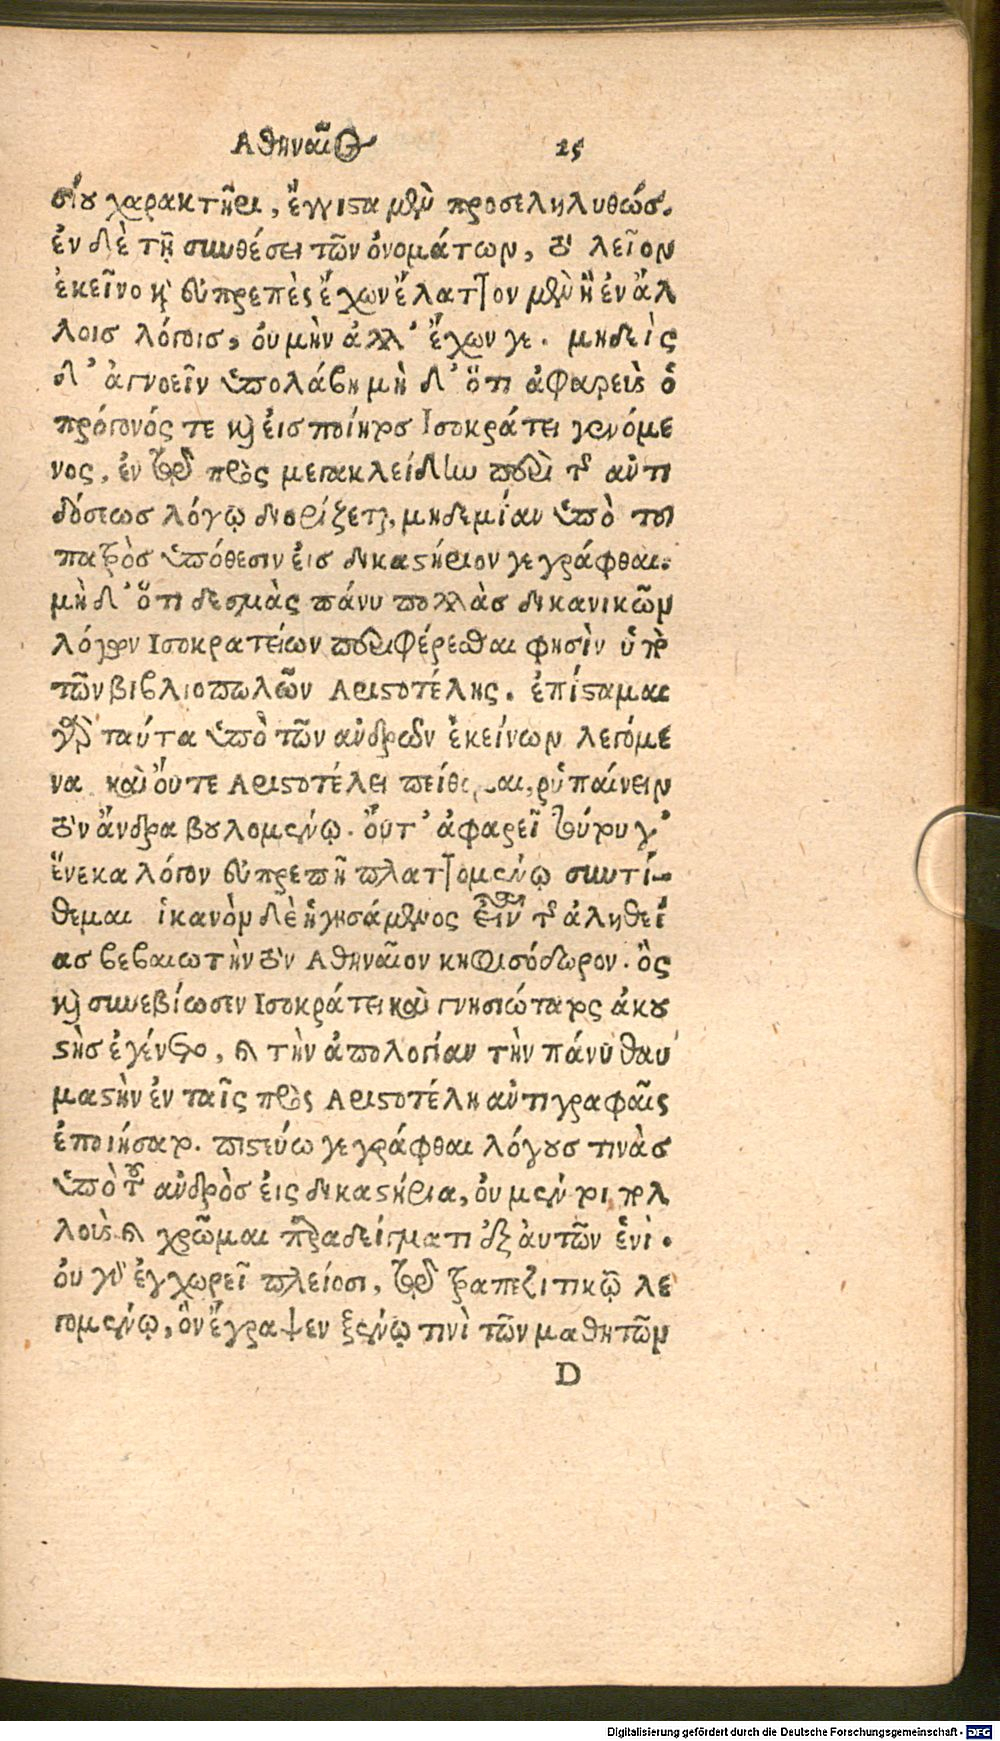 Ἀθηναῖος 25
σίου χαρακτῆρι, ἔγγιστα μὲν προσεληλυθώς.
ἐν δὲ τῇ συνθέσει τῶν ὀνομάτων, τὸ λεῖον
ἐκεῖνο καὶ εὐπρεπὲς ἔχων ἔλαττον μὲν ἢ ἐν ἄλ
λοις λόγοις, οὐ μὴν ἀλλ' ἔχων γε. μηδεὶς
δ' ἀγνοεῖν ὑπολάβῃ μὴ δ' ὅτι ἀφαρεὺς ὁ
πρόγονός τε καὶ εἰσποίητος Ἰσοκράτει γενόμε
νος, ἐν τῷ πρὸς μεγακλείδην περὶ τῆς ἀντι
δόσεως λόγῳ διορίζεται, μηδεμίαν ὑπὸ τοῦ
πατρὸς ὑπόθεσιν εἰς δικαστήριον γεγράφθαι.
μὴ δ' ὅτι δεσμὰς πάνυ πολλὰς δικανικῶν
λόγων Ἰσοκρατείων περιφέρεσθαι φησὶν ὑπὸ
τῶν βιβλιοπωλῶν Ἀριστοτέλης. ἐπίσταμαι
γὰρ ταῦτα ὑπὸ τῶν ἀνδρῶν ἐκείνων λεγόμε
να καὶ οὔτε Ἀριστοτέλει πείθομαι, ῥυπαίνειν
τὸν ἄνδρα βουλομένῳ. οὔτ' ἀφαρεῖ τούτου γ'
ἕνεκα λόγον εὐπρεπῆ πλαττομένῳ συντί-
θεμαι ἱκανὸν δὲ ἡγησάμενος εἶναι τῆς ἀληθεί
ας βεβαιωτὴν τὸν Ἀθηναῖον κηφισόδωρον. ὃς
καὶ συνεβίωσεν Ἰσοκράτει καὶ γνησιώτατος ἀκου
στὴς ἐγένετο, καὶ τὴν ἀπολογίαν τὴν πάνυ θαυ
μαστὴν ἐν ταῖς πρὸς Ἀριστοτέλη ἀντιγραφαῖς
ἐποιήσατο. πιστεύω γεγράφθαι λόγους τινὰς
ὑπὸ τοῦ ἀνδρὸς εἰς δικαστήρια, οὐ μέντοι πολ
λοὺς καὶ χρῶμαι παραδείγματι ἐξ αὐτῶν ἑνὶ.
οὐ γὰρ ἐγχωρεῖ πλείοσι, τῷ τραπεζιτικῷ λε
γομένῳ, ὃν ἔγραψεν ξένῳ τινὶ τῶν μαθητῶν
D
Digitalisierung gefördert durch die Deutsche Forschungsgemeinschaft - DFG